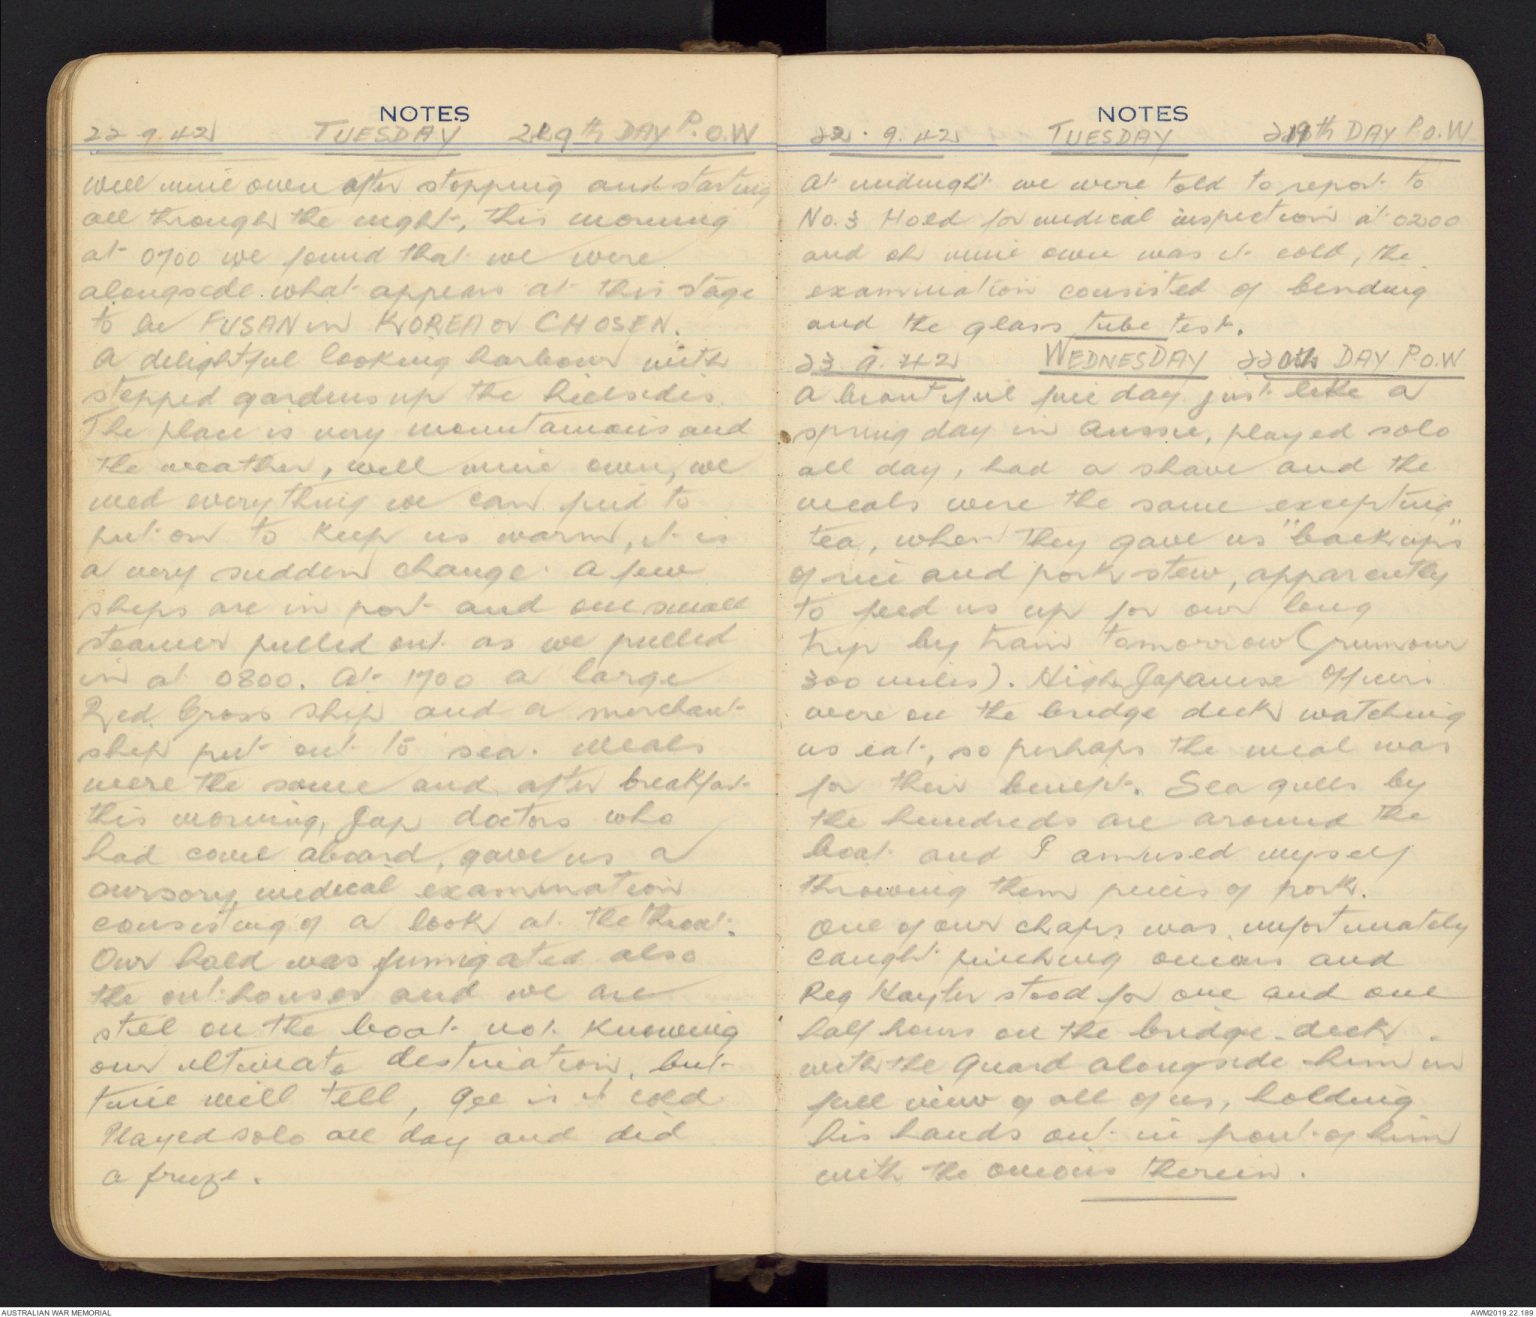 NOTES
22 9.42 TUESDAY 219th DAY P.O.W
Well mine own after stopping and starting
all through the night, this morning
at 0700 we found that we were
alongside what appears at this stage
to be FUSAN in KOREA or CHOSEN.
A delightful looking harbour with
stepped gardens up the hillsides.
The place is very mountainous and
the weather, well mine own, we
need everything we can find to
put on to keep us warm, it is
a very sudden change. A few
ships are in port and one small
steamer pulled out as we pulled
in at 0800. At 1700 a large
Red Cross ship and a merchant
ship put out to sea. Meals
were the same and after breakfast
this morning, Jap doctors who
had come aboard, gave us a
cursory medical examination
consisting of a look at the throat.
Our hold was fumigated also
the outhouses and we are
still on the boat not knowing
our ultimate destination, but
time will tell, gee is it cold
Played solo all day and did
a freeze.
NOTES
22.9.42 TUESDAY 219th DAY P.O.W
At midnight we were told to report to
No.3 Hold for medical inspection at 0200
and oh mine own was it cold, the
examination consisted of bending
and the glass tube test.
23 9.42 WEDNESDAY 220th DAY P.O.W
A beautiful fine day just like a
spring day in Aussie, played solo
all day, had a shave and the
meals were the same excepting
tea, when they gave us "back ups"
of rice and pork stew, apparently
to feed us up for our long
trip by train tomorrow (rumour
300 miles). High Japanese Officers
were on the bridge deck watching
us eat, so perhaps the meal was
for their benefit. Sea gulls by
the hundreds are around the
boat and I amused myself
throwing them pieces of pork.
One of our chaps was unfortunately
caught pinching onions and
Reg Hayter stood for one and one
half hours on the bridge deck
with the guard alongside him in
full view of all of us, holding
his hands out in front of him
with the onions therein.
AUSTRALIAN WAR MEMORIAL
AWM2019.22.189